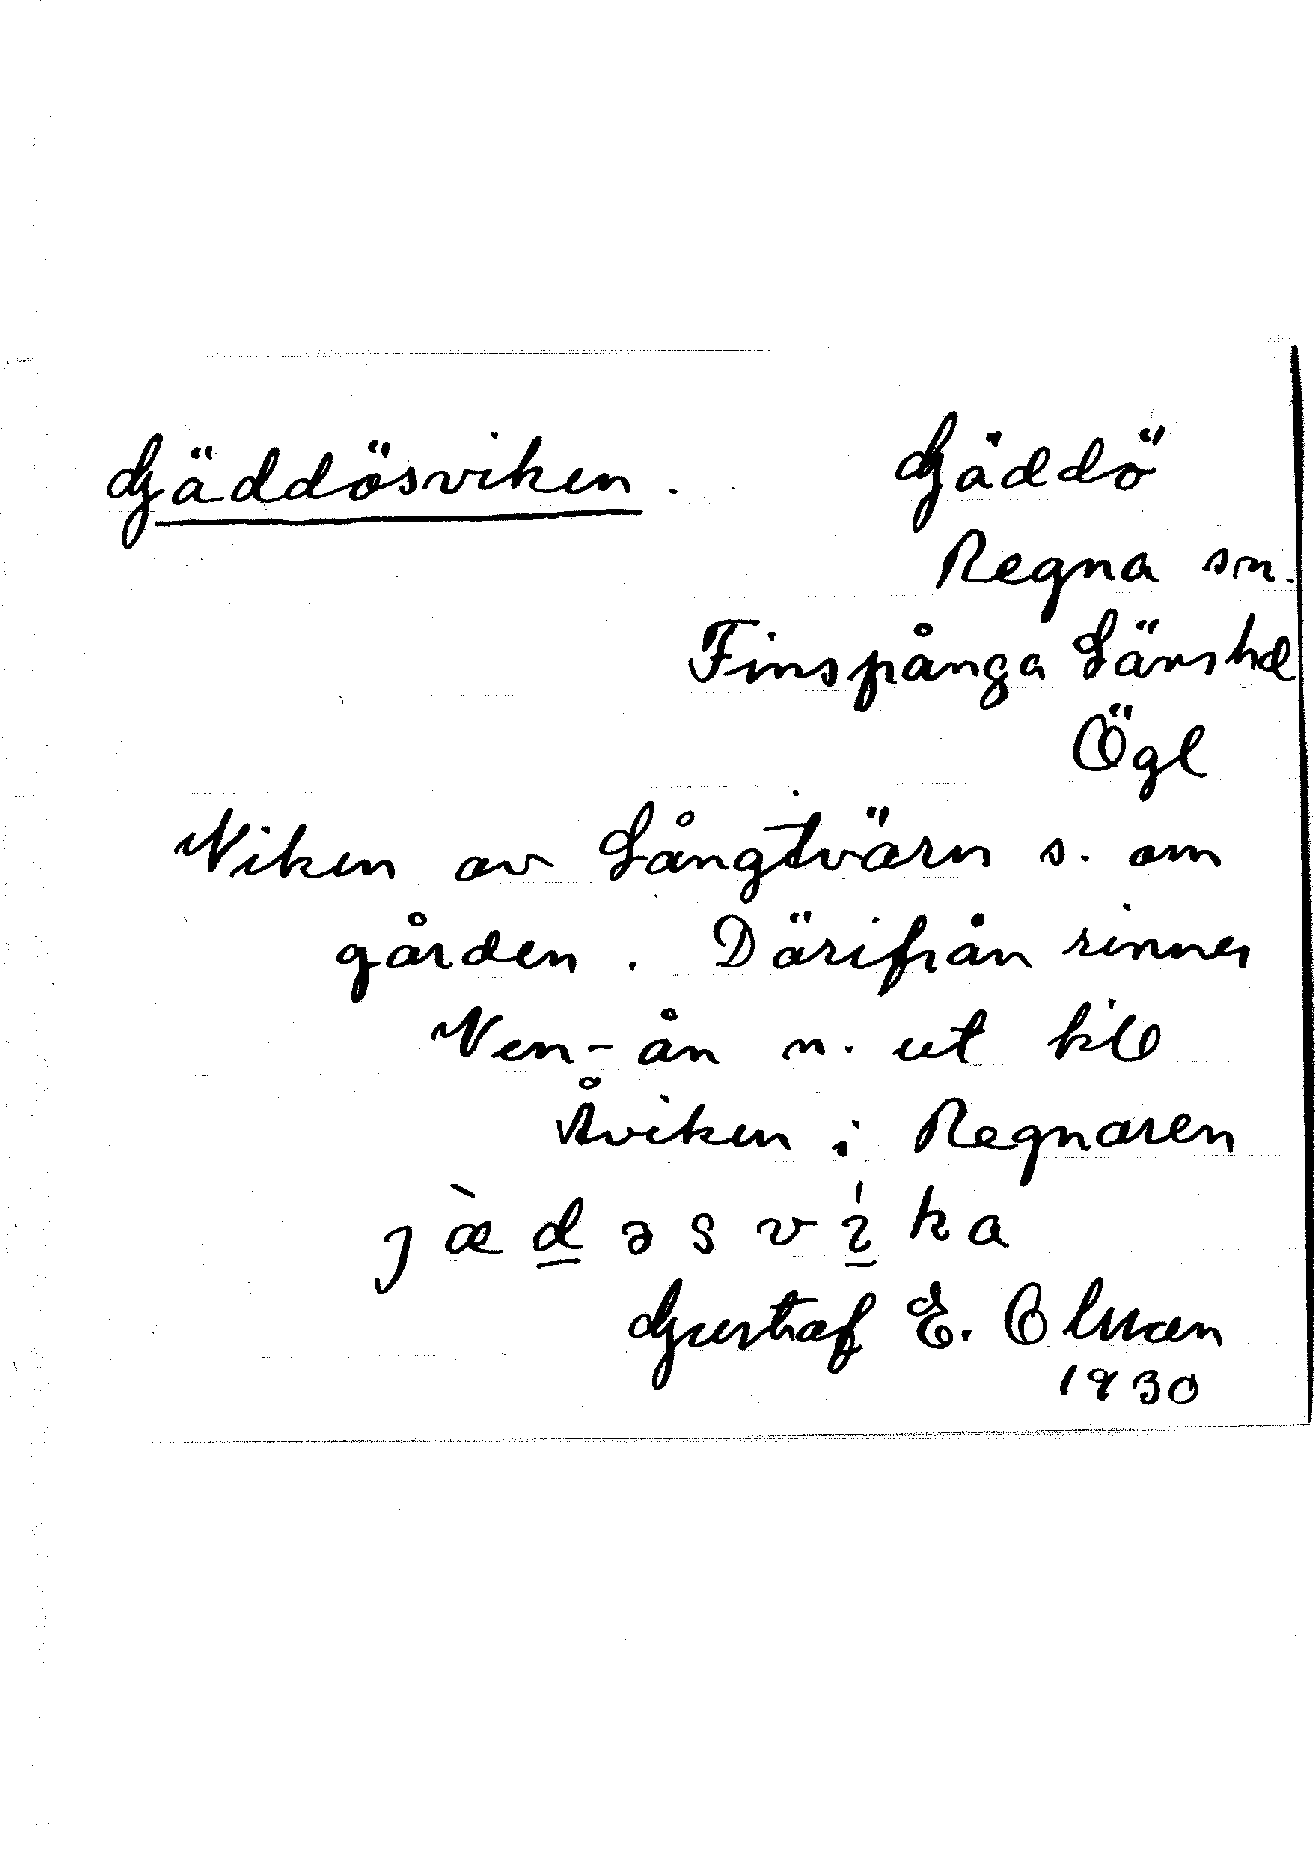 Gäddösviken. Gäddö
Regna sn.
Finspånga Länshd
Ögl
Viken av Långtvärn s. om
gården. Därifrån rinner
Ven-ån n. ut till
Åviken i Regnaren
jæ̀d̲əsví̲ka
Gustaf E. Olsson
1930